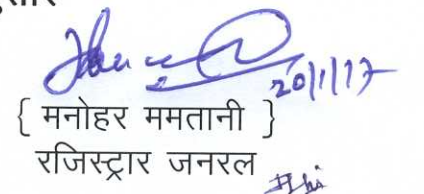 20/1/17
{ मनोहर ममतानी }
रजिस्ट्रार जनरल